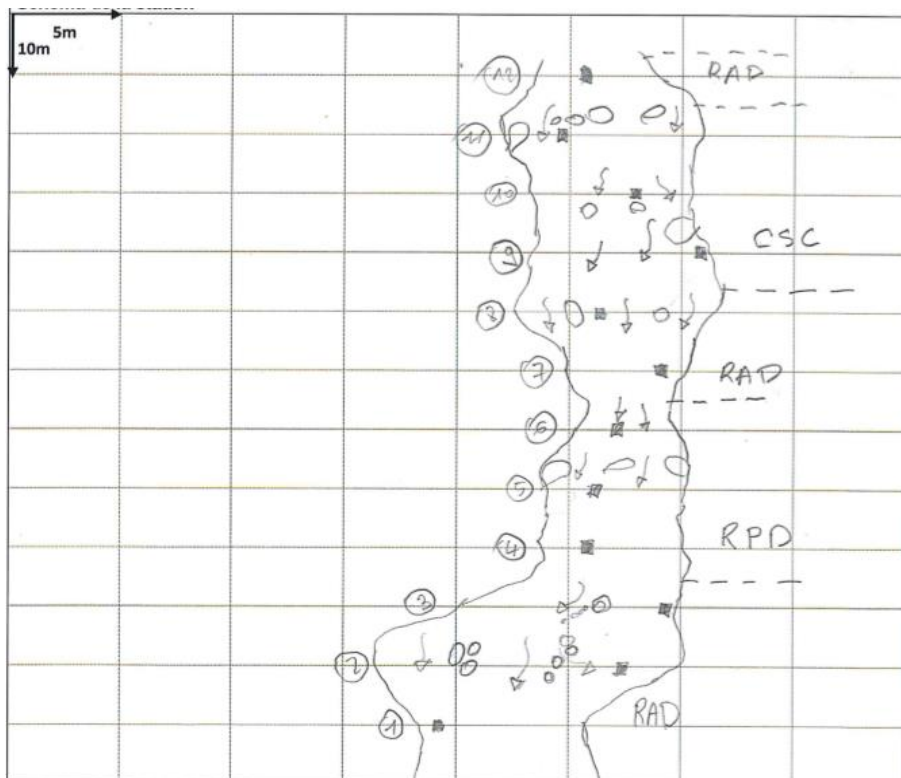 5m
10m
12
RAD
11
10
9
CSC
8
7
RAD
6
5
4
RPD
3
2
RAD
1